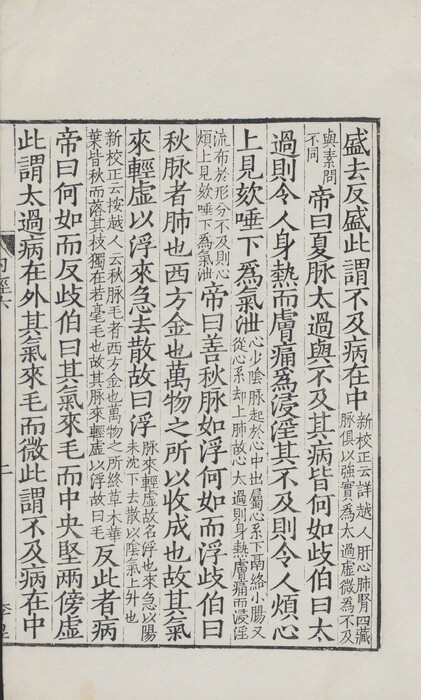 盛去反盛此謂不及病在中新校正云詳越人肝心肺腎四藏脉俱以強實為太過虛微為不及
與素問不同帝曰夏脉太過與不及其病皆何如歧伯曰太
過則令人身熱而膚痛爲浸淫其不及則令人煩心
上見欬唾下爲氣泄心少陰脉起於心中出屬心系下鬲絡小腸又從心系却上肺故心太過則身熱膚痛而浸淫
流布於形分不及則心煩上見欬唾下為氣泄帝曰善秋脉如浮何如而浮歧伯曰
秋脉者肺也西方金也萬物之所以收成也故其氣
來輕虛以浮來急去散故曰浮脉來輕虛故名浮也來急以陽未沈下去散以陰氣上升也
新校正云按越人云秋脉毛者西方金也萬物之所終草木華葉皆秋而落其枝獨在若毫毛也故其脉來輕虛以浮故曰毛反此者病
帝曰何如而反歧伯曰其氣來毛而中央堅兩傍虛
此謂太過病在外其氣來毛而微此謂不及病在中